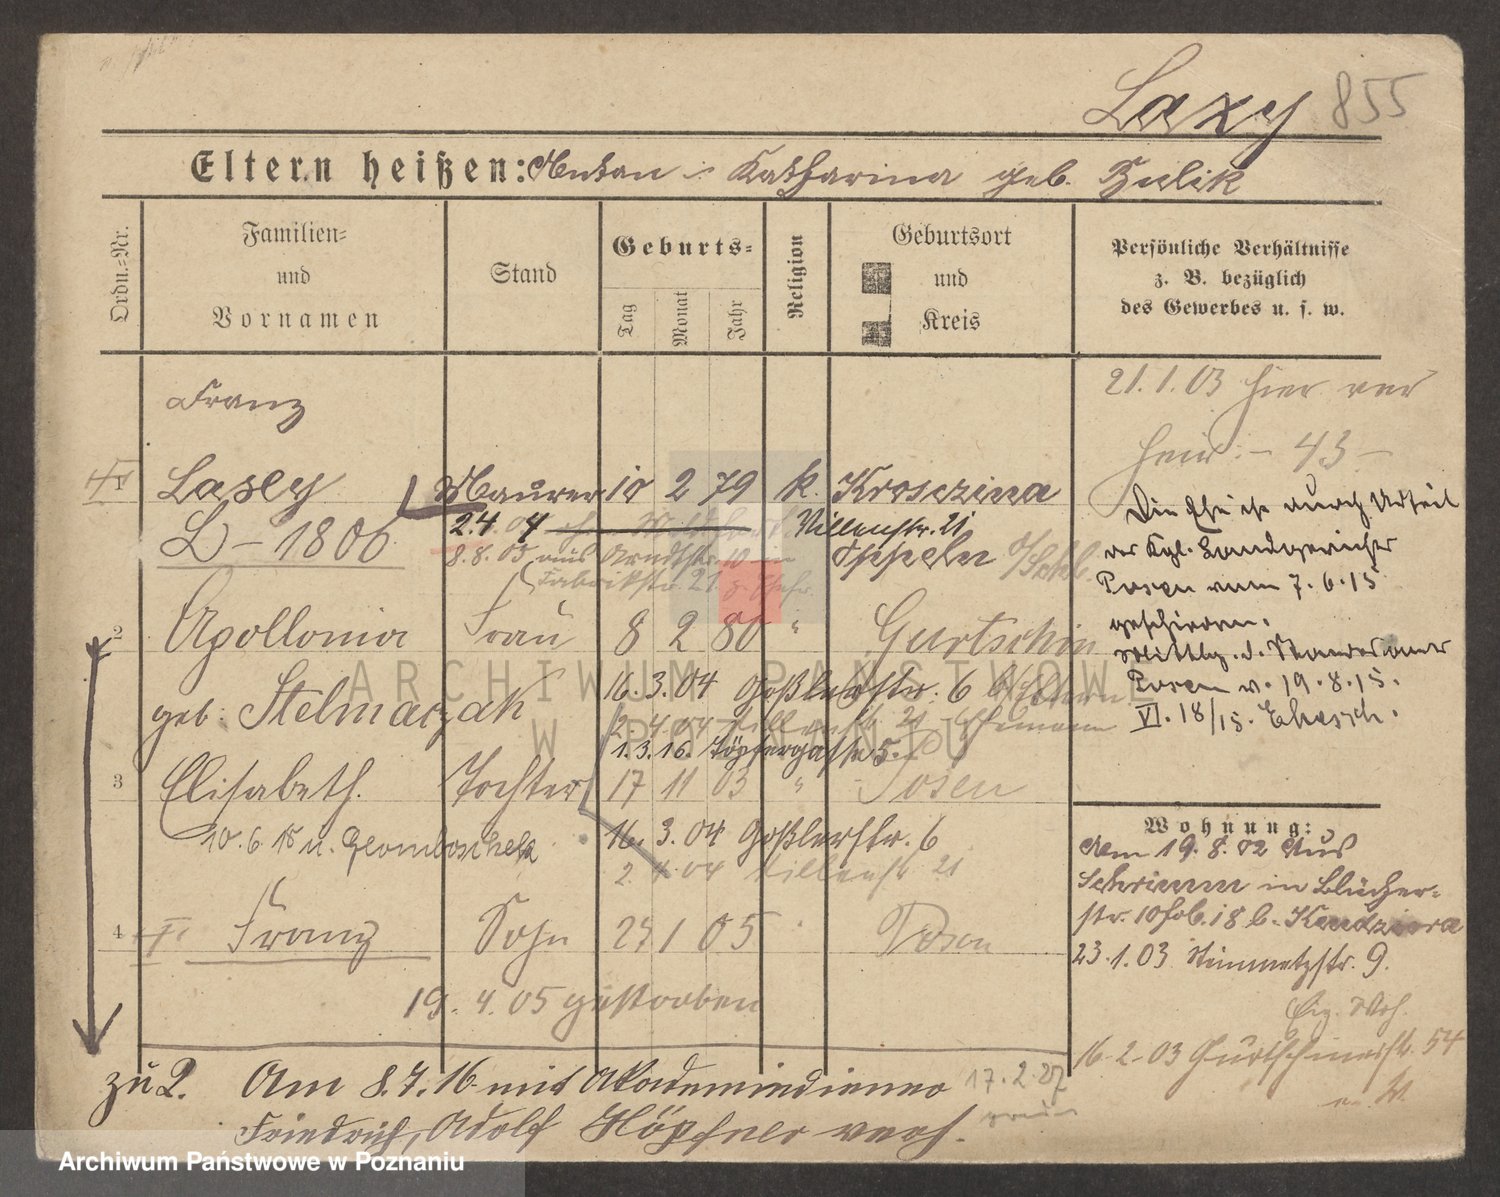 Laxy 855
Eltern heißen: Anton - Katharina geb. Zulik
Ordn.-Nr.
Familien-
und
Vornamen
Stand
Geburts-
Tag
Monat
Jahr
Religion
Geburtsort
und
Kreis
Persönliche Verhältnisse
z. B. bezüglich
des Gewerbes u. s. w.
Franz
21. 1. 03 hier ver
heir. - 43 -
1 Laxy Maurer 10 2 79 k. Krosczina
L - 1806
2. 4. 04 Villenstr. 21
8. 8. 03 aus Arndtstr. 10 in
Fabrikstr. 21
Oppeln O/Schl.
Die Ehe ist durch Urteil
des Kgl. Landgerichts
Posen vom 7. 6. 15
geschieden.
Mittlg. d. Standesamts
Posen v. 19. 8. 15.
VI. 18/15. Ehesch.
2 Apollonia Frau 8 2 80 " Gurtschin
geb. Stelmaczak
16. 3. 04 Goßlerstr. 6
2. 4. 04 Villenstr. 21 Ehemann
1. 3. 16. Töpfergasse 5.
3 Elisabeth. Tochter 17 11 03 " Posen
10. 6. 18 n.
16. 3. 04 Goßlerstr. 6
2 4 04 Villenstr 21
4 Franz Sohn 27 1 05 " Posen
19. 4. 05 gestorben
Wohnung:
Am 19. 8. 02 aus
Schrimm in Blücher-
str. 10 b. Kendziora
23. 1. 03 Steinmetzstr. 9.
Eig. Woh.
16-2-03 Gurtschinerstr. 54
zu 2. Am 8. 7. 16 mit Akademiediener
Friedrich, Adolf Höpfner verh.
17. 2. 27
ARCHIWUM PAŃSTWOWE
W POZNANIU
Archiwum Państwowe w Poznaniu